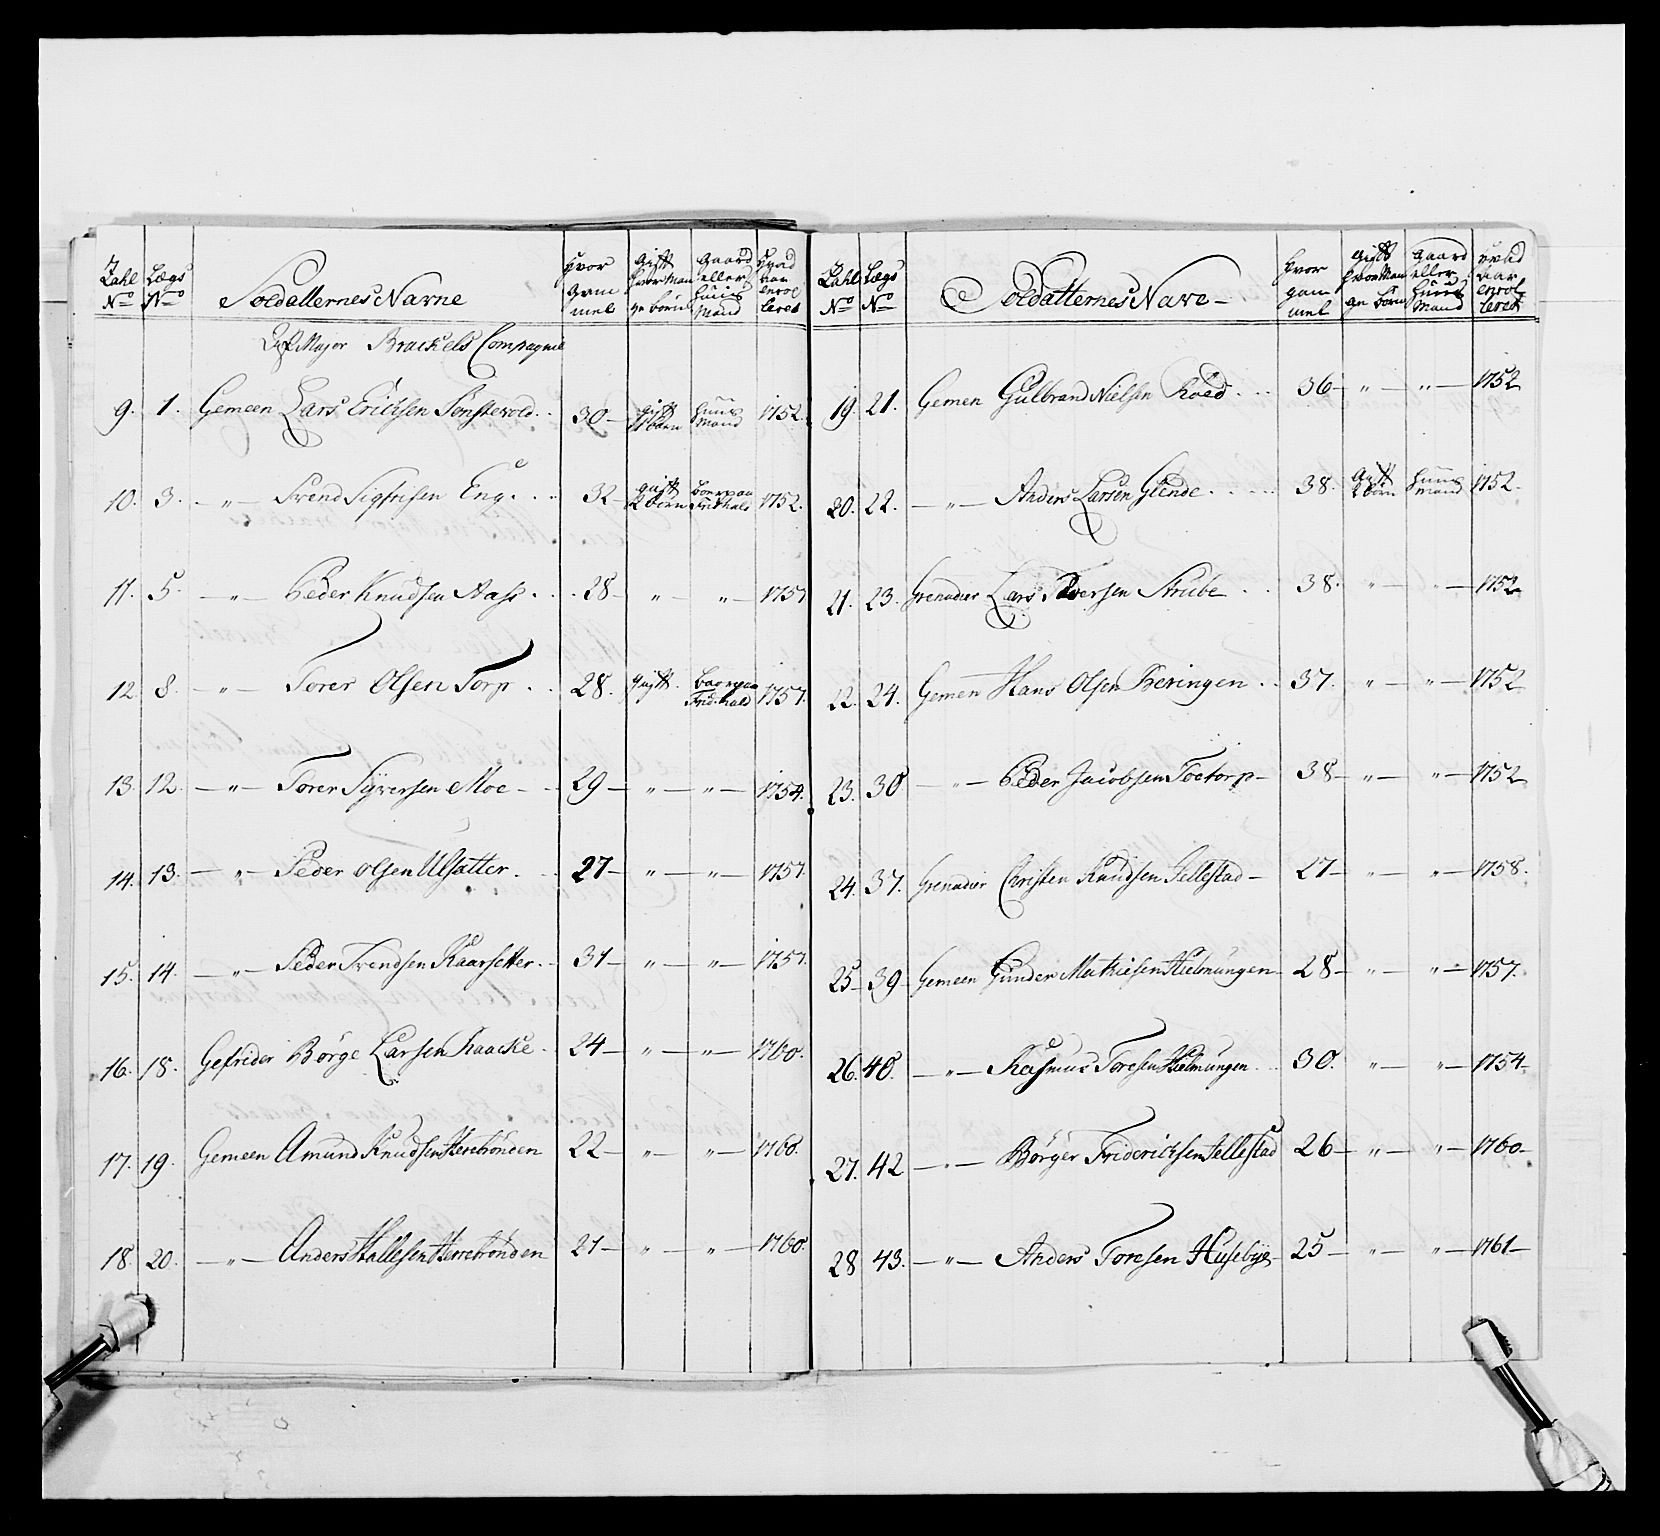 Zahl No Lægs No Soldatternes Navne Hvor Gammel Gift Hvor Mange børn Gaard eller Huus Mand Hvad aar enrolleret
Major Brackels Compagnie
9. 1. Gemeen Lars Ericksen Sønstevold 30 gift børn Huus Mand 1752.
10. 3. " Svend Sigfrisen Eng 32 gift 2 børn Boer paa Fridhald 1752.
11. 5. " Peder Knudsen Aass 28 " " 1757
12 8. " Torer Olsen Torp 28. gift Boer paa Frid.hald 1757.
13. 12. " Torer Syversen Moe 29 " " 1754.
14. 13. " Peder Olsen Ulsætter 27 " " 1757.
15. 14. " Peder Svendsen Kaarsetter 31 " " 1757.
16. 18. Gefrider Børge Larsen Kaacke 24 " " 1760.
17. 19. Gemeen Amund Knudsen Herrebrönden 22 " " 1760.
18. 20. " Anders Hallesen Herrebrönden 21 " " 1760.
Zahl No Lægs No Soldatternes Nave Hvor gammel Gift Hvor Mange børn Gaard eller Huus Mand Hvad aar enrolleret
19. 21. Gemen Gulbrand Nielsen Roed 36 " " 1752
20. 22. " Anders Larsen Glende 38. Gift 2 børn Huus Mand 1752.
21. 23. Grenadier Lars Iversen Strube 38. " " 1752
22. 24. Gemen Hans Olsen Beringen 37. " " 1752
23. 30 " Peder Jacobsen Toetorp 38 " " 1752
24. 37. Grenadier Christen Knudsen Jellestad 27 " " 1758.
25 39 Gemeen Gunder Mathiesen Hielmungen 28 " " 1757.
26. 40. " Rasmus Toresen Hielmungen 30. " " 1754
27. 42 " Børger Fridericksen Jellestad 26 " " 1760
28 43. " Anders Toresen Husebye 25 " " 1761